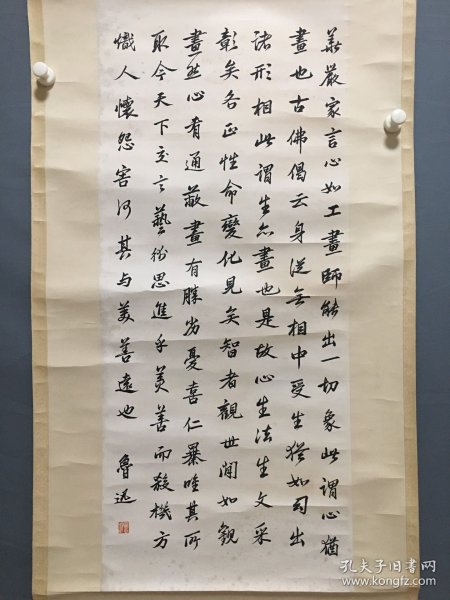 华严家言心如工畫師能出一切象此謂心猶
畫也古佛偈云身從无相中受生猶如幻出
諸形相此謂生亦畫也是故心生法生文采
彰矣各正性命變化見矣智者觀世間如觀
畫然心有通蔽畫有勝劣憂喜仁暴唯其所
取今天下交言藝術思進乎美善而殺機方
熾人懷怨害何其与美善遠也
魯迅
孔夫子旧书网
www.kongfz.com